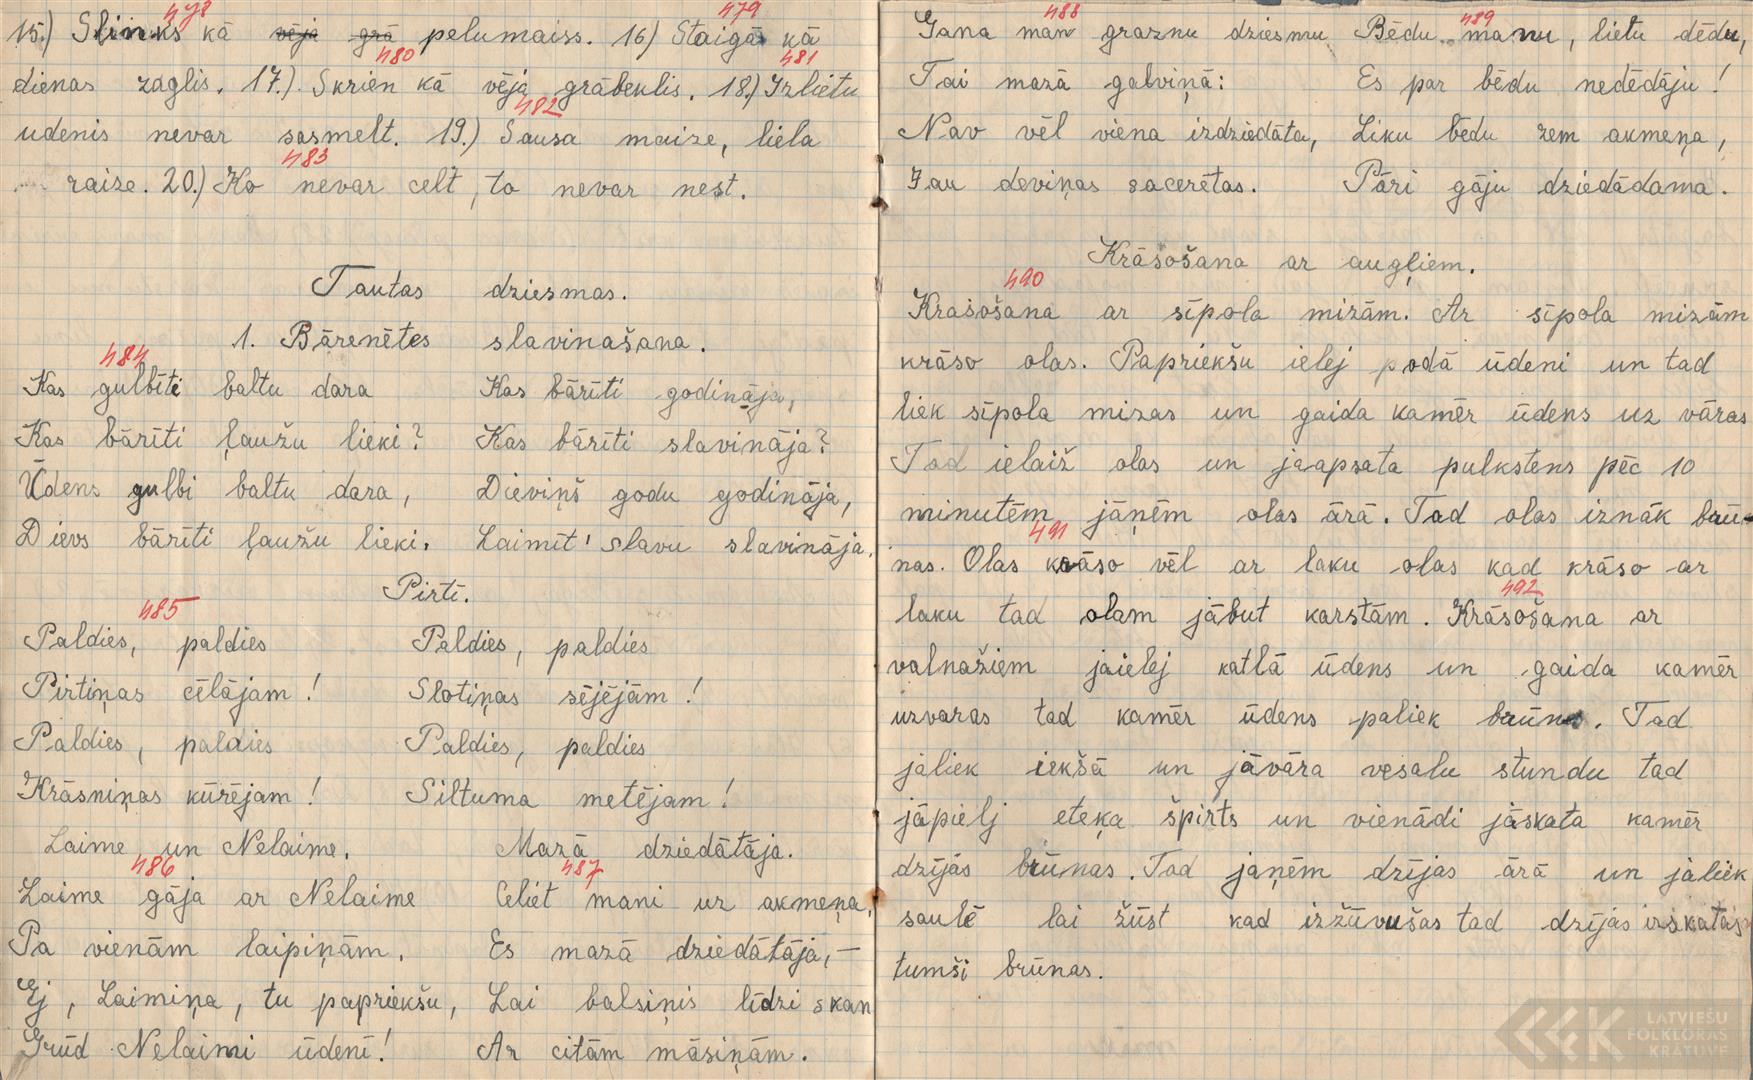 478 479
15.) Slinks kā vēja grā pelumaiss. 16) Staigā kā
480 481
dienas zaglis. 17.) Skrien kā vēja grābeklis. 18.) Izlietu
482
udenis nevar sasmelt. 19.) Sausa maize, liela
483
raize. 20.) Ko nevar celt, to nevar nest.
Tautas dziesmas.
1. Bārenētes slavinašana.
484
Kas gulbīti baltu dara
Kas bārīti ļaužu lieki?
Ūdens gulbi baltu dara,
Dievs bārīti ļaužu lieki.
Kas bārīti godinaja,
Kas bārīti slavināja?
Dieviņš godu godināja,
Laimīt' slavu slavināja.
Pirtī.
485
Paldies, paldies
Pirtiņas cēlājam!
Paldies, paldies
Krāsniņas kūrējam!
Paldies, paldies
Slotiņas sējējām!
Paldies, paldies
Siltuma metējam!
Laime un Nelaime.
486
Laime gāja ar Nelaime
Pa vienām laipiņām.
Ej, Laimiņa, tu papriekšu,
Grūd Nelaimi ūdenī!
Mazā dziedātāja.
487
Celiet mani uz akmeņa,
Es mazā dziedātāja, —
Lai balsiņis līdzi skan
Ar citām māsiņām.
488
Gana man graznu dziesmu
Tai mazā galviņā:
Nav vēl viena izdziedāta,
Jau deviņas sacerētas.
489
Bēdu manu, lietu dēdu,
Es par bēdu nedēdāju!
Liku bēdu zem akmeņa,
Pāri gāju dziedādama.
Krāsošana ar augļiem.
490
Krasošana ar sīpola mizām. Ar sīpola mizām
krāso olas. Papriekšu ielej podā ūdeni un tad
liek sīpola mizas un gaida kamēr ūdens uz vāras
Tad ielaiž olas un jaapsata pulkstens pēc 10
minutēm jāņēm olas ārā. Tad olas iznāk brū-
491
nas. Olas krāso vēl ar laku olas kad krāso ar
492
laku tad olam jābut karstām. Krāsošana ar
valnažiem jaielej katlā ūdens un gaida kamēr
uzvaras tad kamēr ūdens paliek brūns. Tad
jāliek iekšā un jāvāra vesalu stundu tad
jāpielj eteķa špirts un vienādi jāskata kamēr
dzījās brūnas. Tad jaņēm dzījas ārā un jāliek
saulē lai žūst kad izžūvušas tad dzījas izskatās
tumši brūnas.
LATVIEŠU
FOLKLORAS
KRĀTUVE